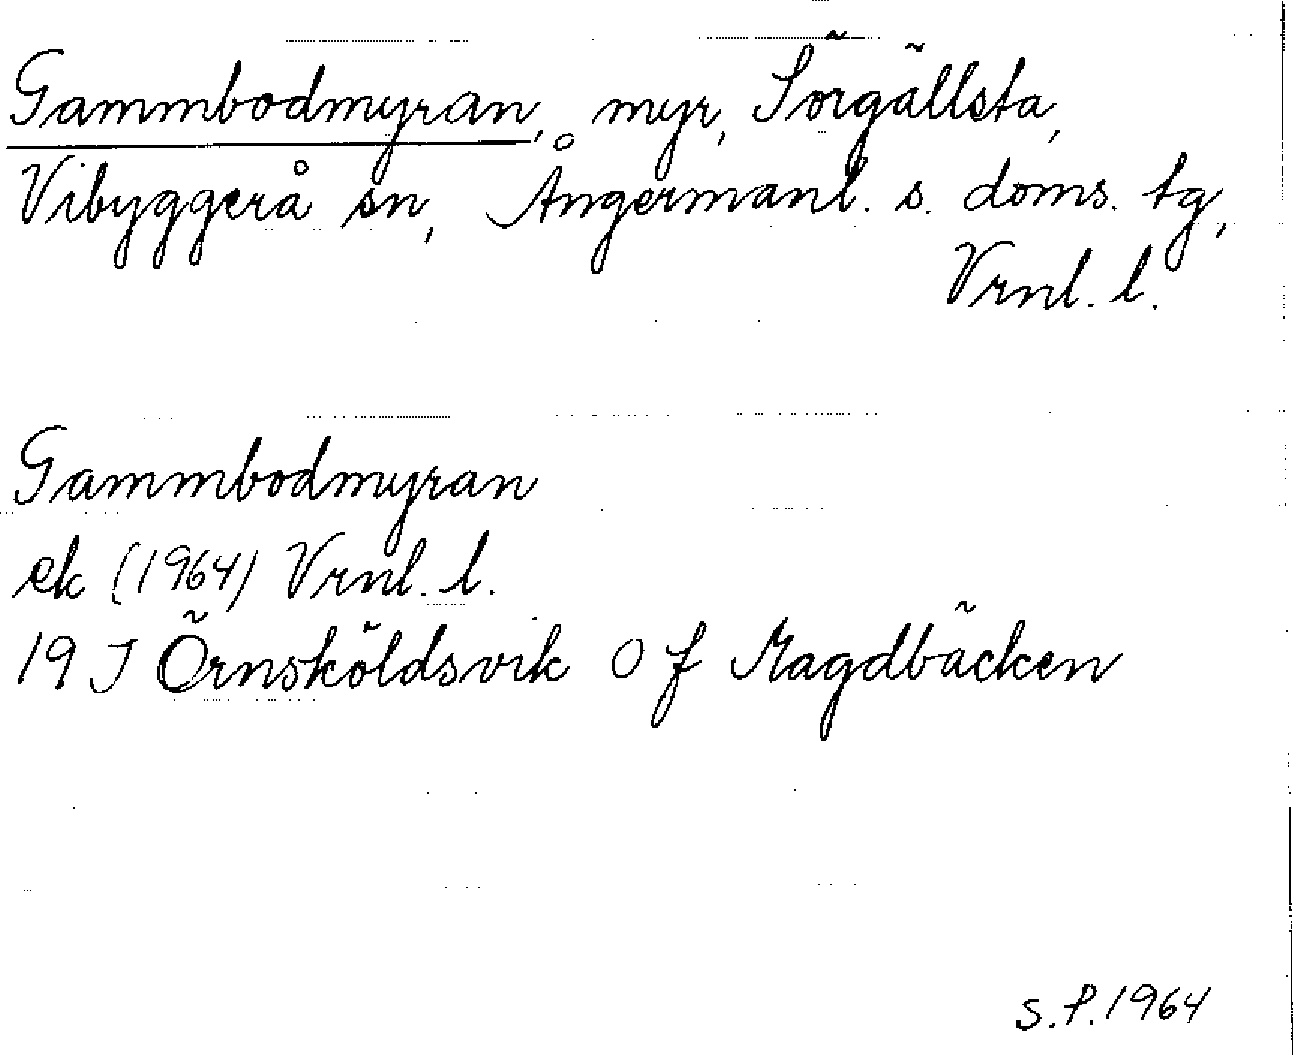 Gammbodmyran, myr, Sörgällsta,
Vibyggerå sn, Ångermanl. s. doms. tg,
Vrnl. l.
Gammbodmyran
ek (1964) Vrnl. l.
19 J Örnsköldsvik O f Magdbäcken
S.P. 1964